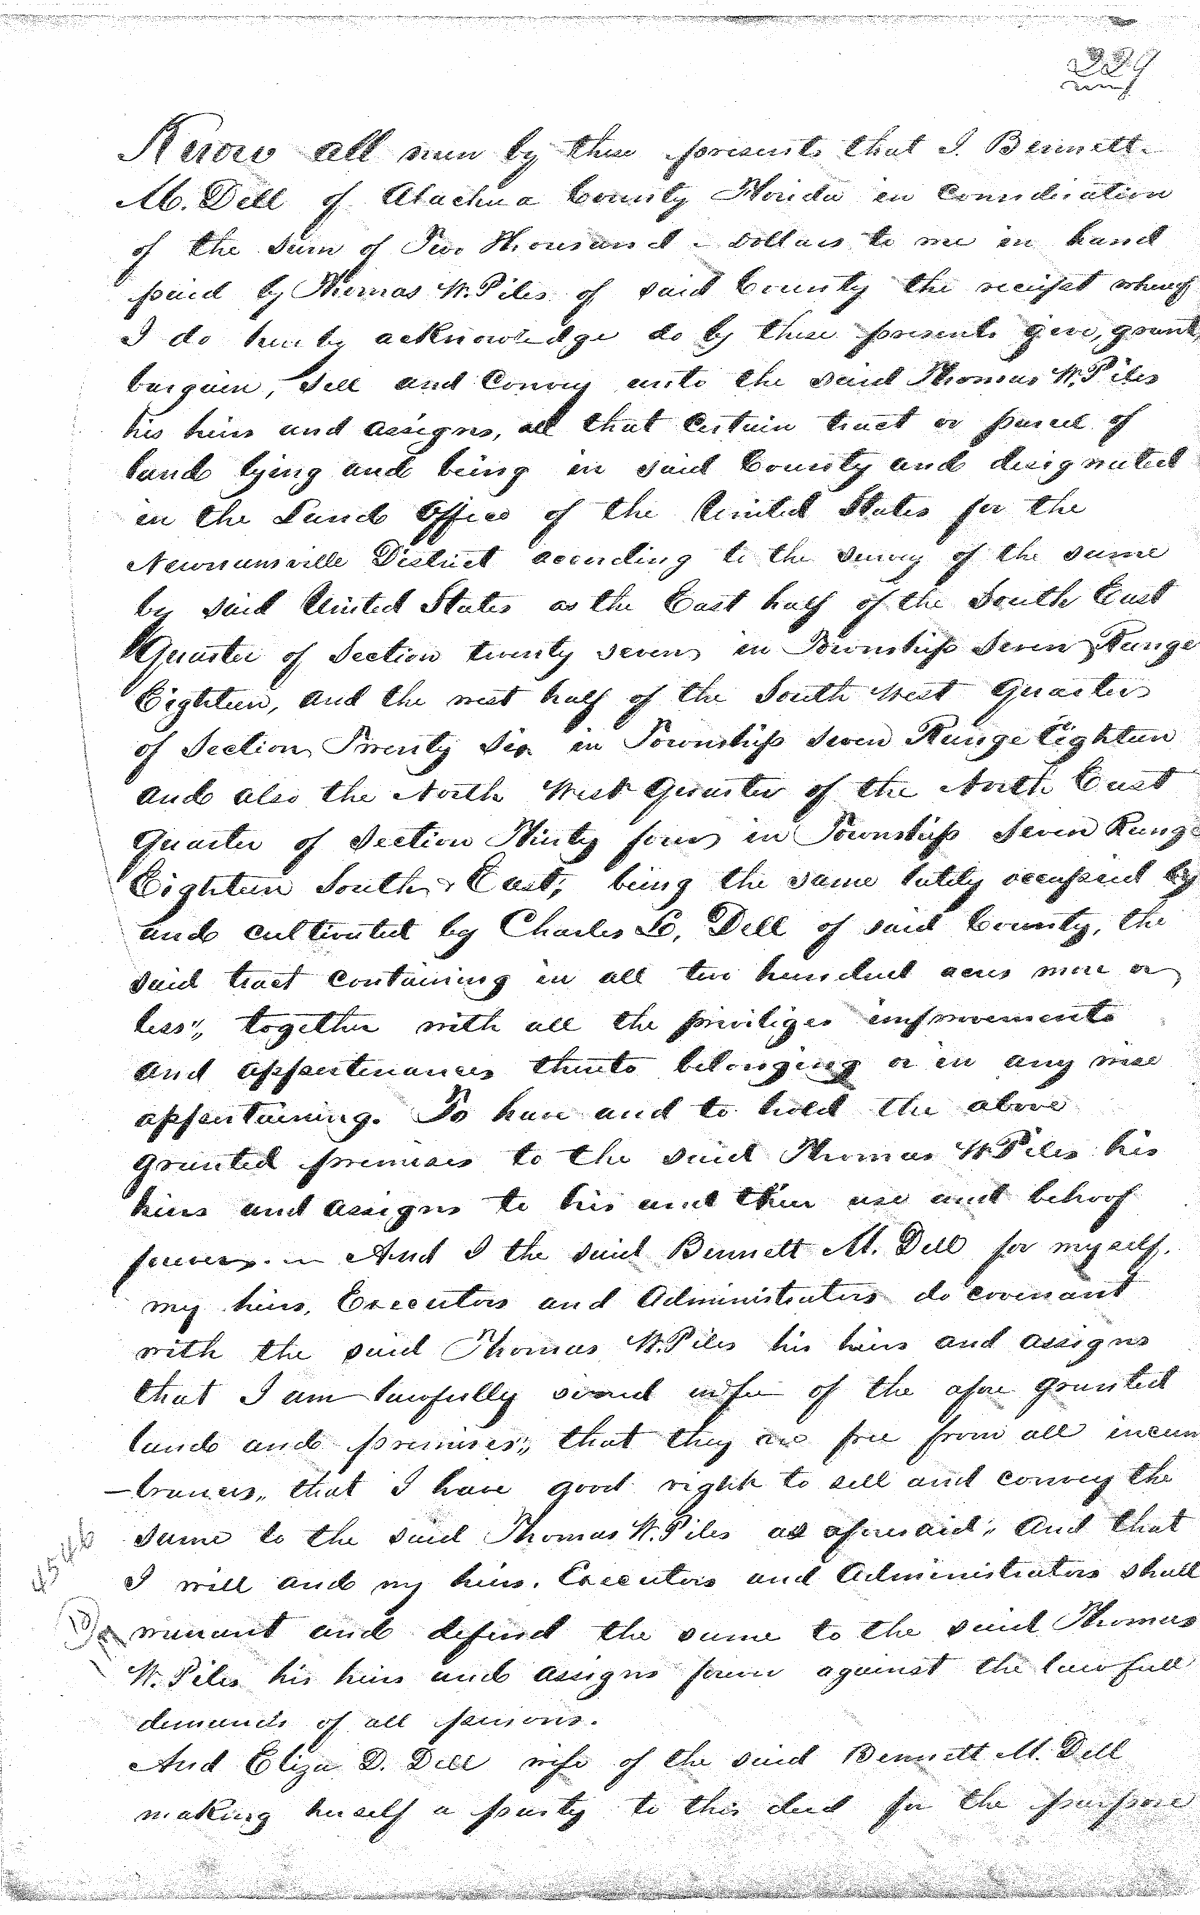 229
Know all men by these presents that I. Bennett
M. Dell of Alachua County Florida in consideration
of the sum of Two Thousand dollars to me in hand
paid by Thomas W. Piles of said County the receipt whereof
I do hereby acknowledge do by these presents give, grant,
bargain, Sell and Convey unto the said Thomas W. Piles
his heirs and assigns, all that certain tract or parcel of
land lying and being in said County and designated
in the Land Office of the United States for the
Newnansville District according to the survey of the same
by said United States as the East half of the South East
Quarter of Section twenty seven in Township Seven Range
Eighteen, and the west half of the South West Quarter
of Section Twenty Six in Township seven Range Eighteen
and also the North West Quarter of the North East
Quarter of Section Thirty four in Township Seven Range
Eighteen South & East, being the same lately occupied by
and cultivated by Charles L. Dell of said County, the
said tract containing in all two hundred acres more or
less, together with all the priviliges improvements
and appertenances thereto belonging or in any wise
appertaining. To have and to hold the above
granted premises to the said Thomas W. Piles his
heirs and assigns to his and their use and behoof
forever. And I the said Bennett M. Dell for myself,
my heirs, Executors and Administrators do covenant
with the said Thomas W. Piles his heirs and assigns
that I am lawfully seized in fee of the afore granted
land and premises, that they are free from all incum
-brances, that I have good right to sell and convey the
same to the said Thomas W. Piles as aforesaid, And that
I will and my heirs, Executors and Administrators shall
warrant and defend the same to the said Thomas
W. Piles his heirs and assigns forever against the lawfull
demands of all persons.
And Eliza D. Dell wife of the said Bennett M. Dell
making herself a party to this deed for the purpose
4546
10